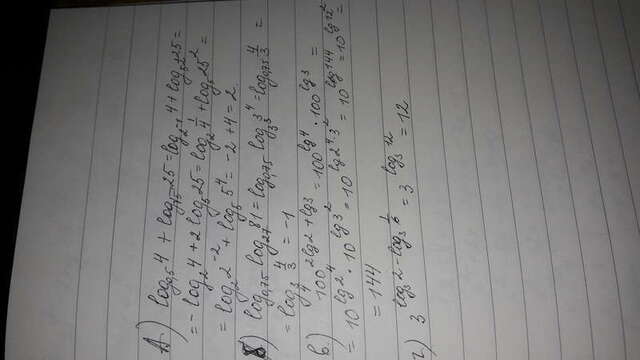 А) log₀,₅ 4 + log_√5 25 = log_2⁻¹ 4 + log_5^½ 25 =
= - log₂ 4 + 2 log₅ 25 = log₂ 1/4 + log₅ 25² =
= log₂ 2⁻² + log₅ 5⁴ = -2 + 4 = 2
Б) log₀,₇₅ log₂₇ 81 = log₀,₇₅ log_3³ 3⁴ = log₀,₇₅ 4/3 =
= log_3/4 4/3 = -1
в) 100^(2lg2 + lg3) = 100^lg4 · 100^lg3 =
= 10^lg2⁴ · 10^lg3² = 10^lg2⁴·3² = 10^lg144 = 10^lg12² =
= 144
г) 3^(log₃2 - log₃ 1/6) = 3^log₃12 = 12